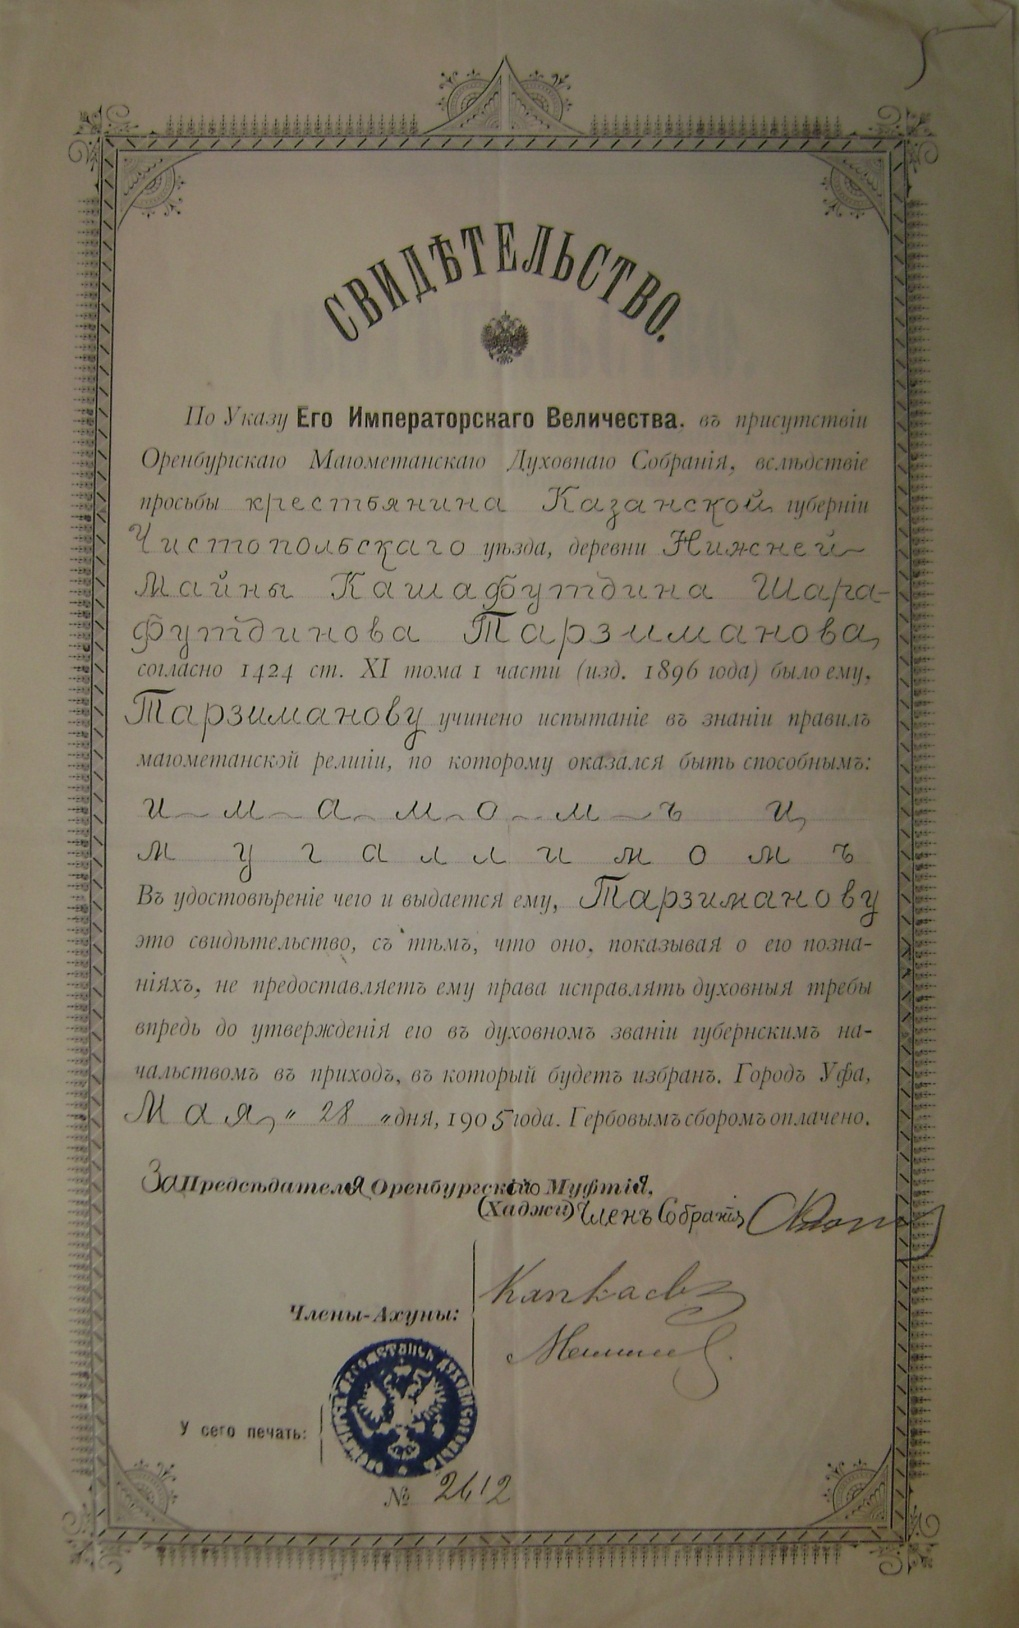 СВИДѢТЕЛЬСТВО.
По Указу Его Императорскаго Величества, въ присутствіи
Оренбургскаго Магометанскаго Духовнаго Собранія, вслѣдствіе
просьбы крестьянина Казанской губерніи
Чистопольскаго уѣзда, деревни Нижней
Майны Кашафутдина Шара-
футдинова Тарзиманова,
согласно 1424 ст. XI тома 1 части (изд. 1896 года) было ему,
Тарзиманову учинено испытаніе въ знаніи правилъ
магометанской религіи, по которому оказался быть способнымъ:
имамомъ и
мугаллимомъ
Въ удостовѣреніе чего и выдается ему, Тарзиманову
это свидѣтельство, съ тѣмъ, что оно, показывая о его позна-
ніяхъ, не предоставляетъ ему права исправлять духовныя требы
впредь до утвержденія его въ духовномъ званіи губернскимъ на-
чальствомъ въ приходъ, въ который будетъ избранъ. Городъ Уфа,
Мая „ 28 „ дня, 1905 года. Гербовымъ сборомъ оплачено.
За Предсѣдателя Оренбургскій Муфтія,
(Хаджи) Членъ Собранія
Члены-Ахуны: Капкаевъ
У сего печать:
№ 2612